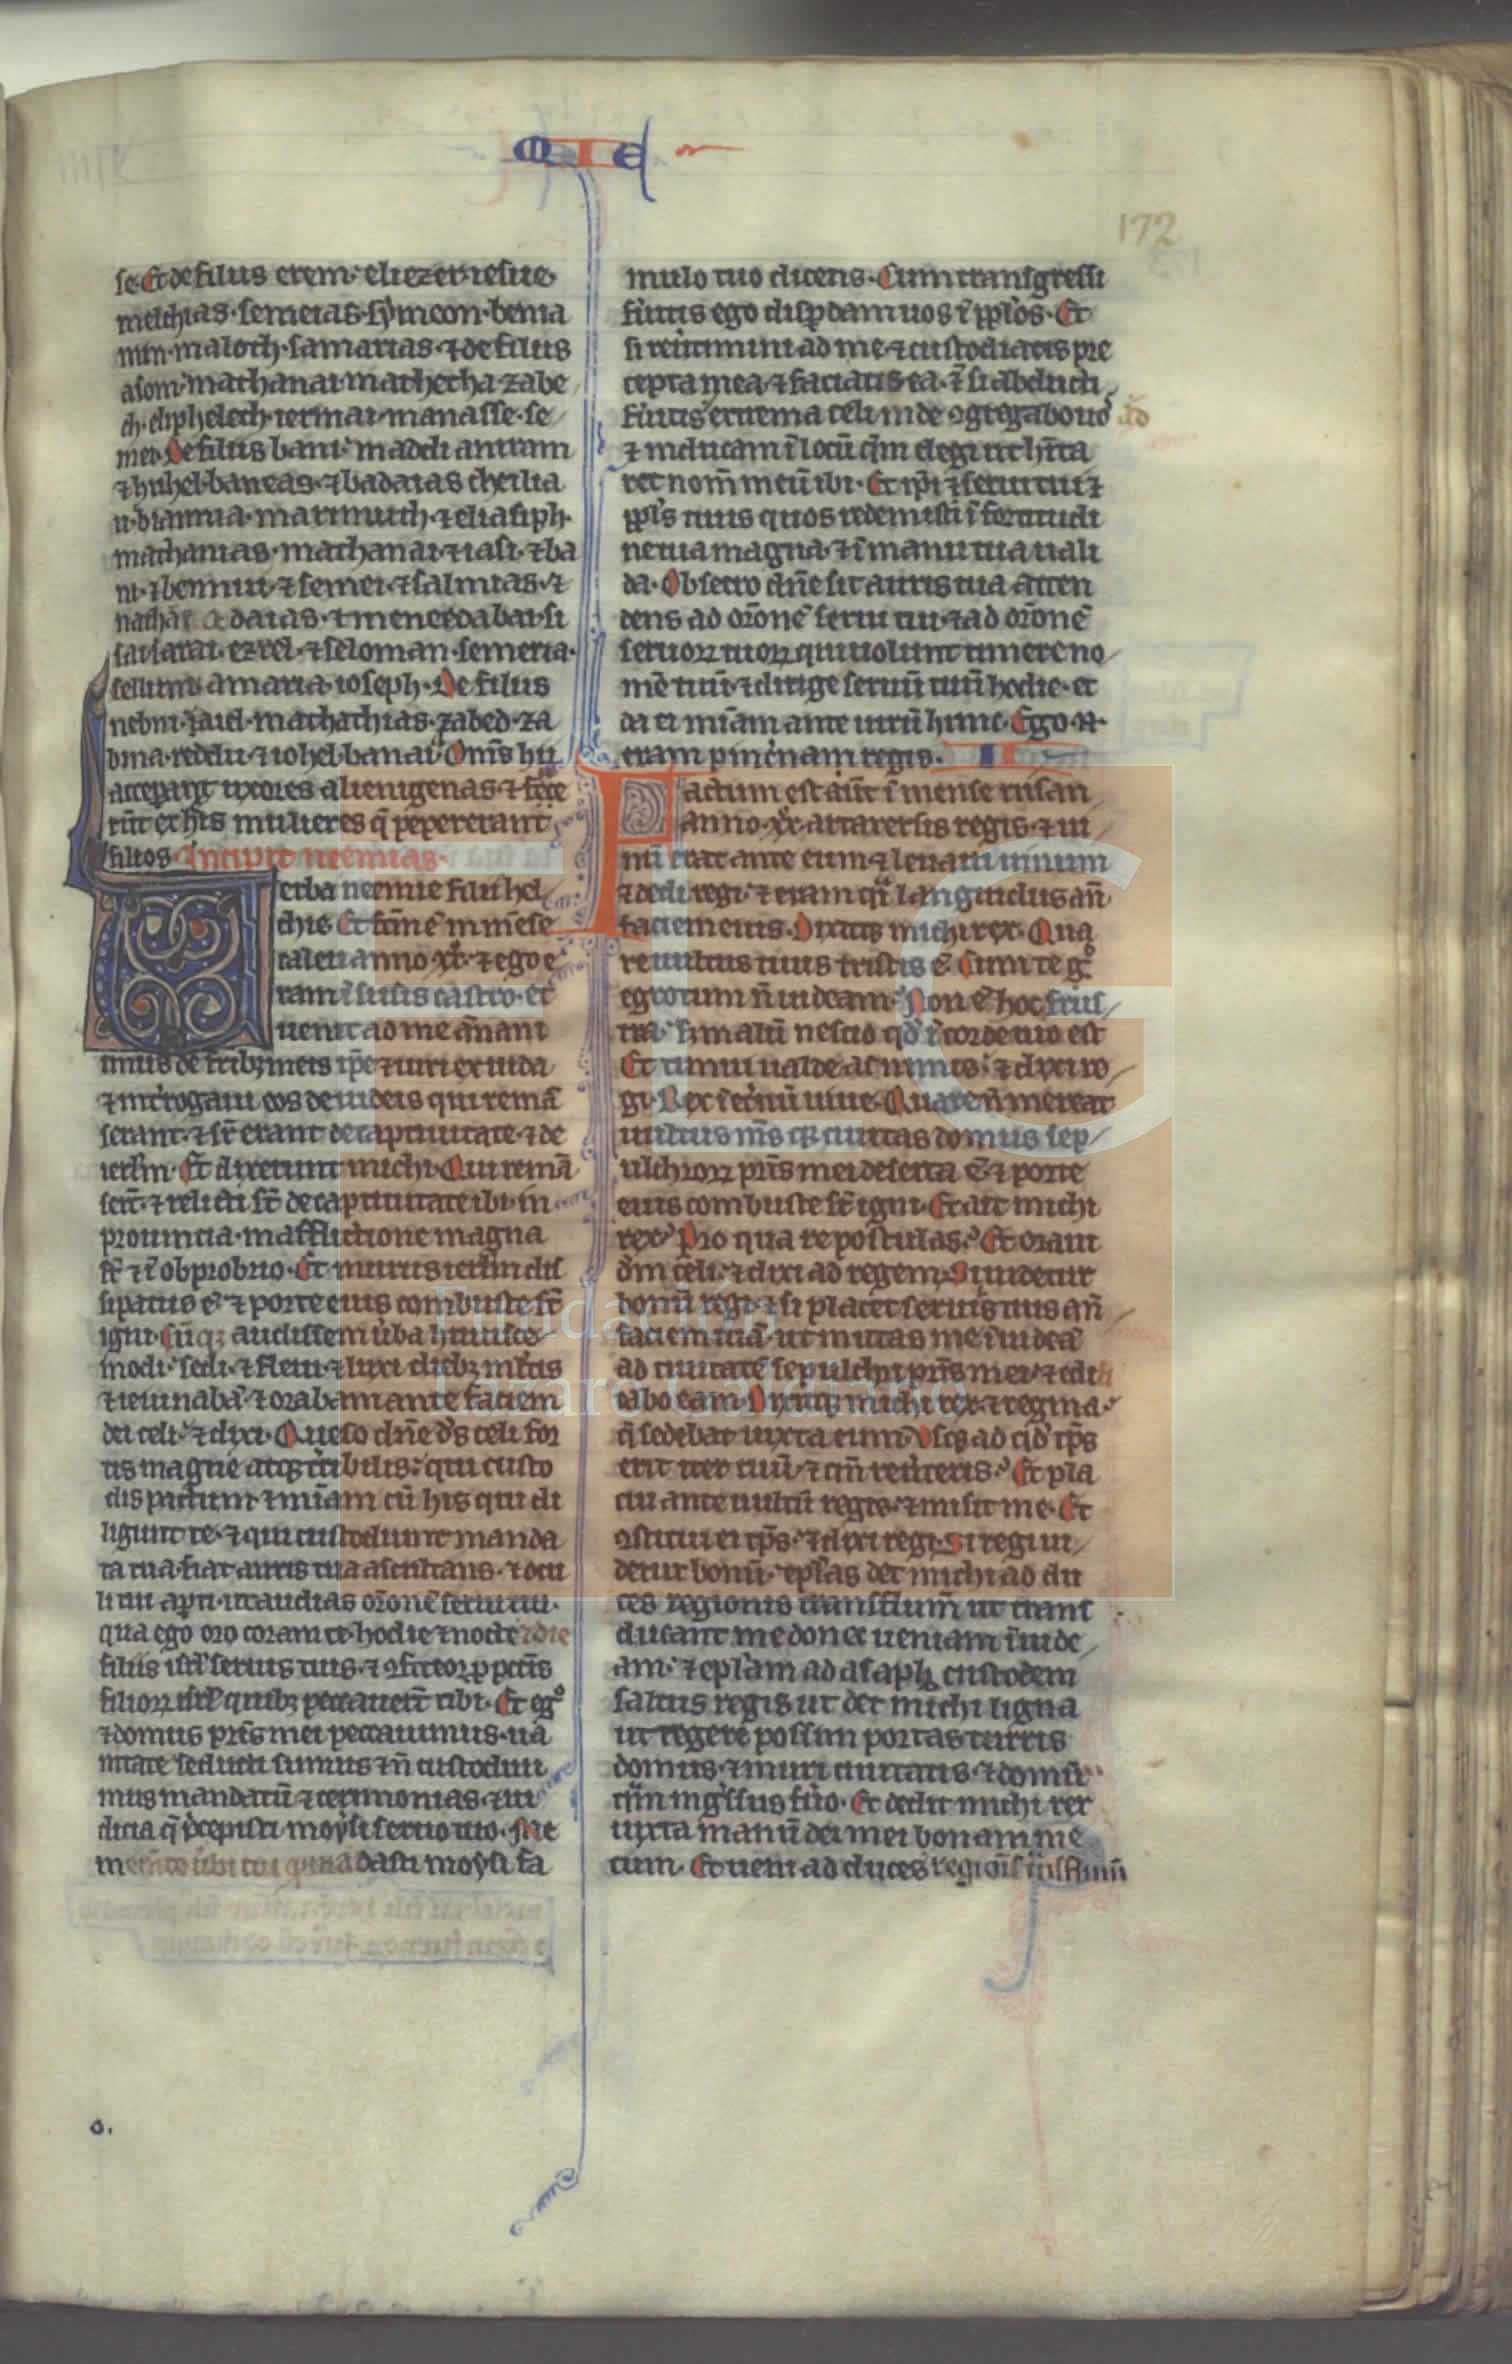 NE
172
se. Et de filiis erem. eliezer iesue.
melchias. semeias. symeon. benia
min. maloch. samarias. ⁊ de filiis
asom. mathanai. mathetha. zabe
d. eliphelech. iermai. manasse. se
mei. De filiis bani. maddi amram
⁊ huhel. baneas. ⁊ badaias cheilia
u. biannia. marimuth. ⁊ eliasiph.
mathanias. mathanai. ⁊ iasi. ⁊ ba
ni. ⁊ bennui. ⁊ semei. ⁊ salmias. ⁊
nathan daias. ⁊ menedabai. si
sai sarai. ezrel. ⁊ seloman. semeria.
sellum. amaria. ioseph. De filiis
nebni. iaiel. mathathias. zabed. za
bina. reddu. ⁊ iohel. banai. Om̄s hii
acceperāt uxores alienigenas ⁊ fue
rūt ex his mulieres q̄ pepererant
filios. Incipit neemias.
Verba neemie filii hel
chie. Et fc̄m ē in mēse
caleu anno xx. ⁊ ego e
ram ī susis castro. et
uenit ad me anani
unus de frībꝫ meis ip̄e ⁊ uiri ex iuda
⁊ int̄rogaui eos de iudeis qui remā
serant. ⁊ sup̄ erant de captiuitate. ⁊ de
ierl̄m. Et dixerunt michi. Qui remā
serūt. ⁊ relicti sūt de captiuitate ibi. in
prouincia. in afflictione magna
sūt ⁊ ī obprobrio. Et murus ierl̄m dis
sipatus ē. ⁊ porte eius combuste sūt
igni. Cūqꝫ audissem ūba huiusce
modi. sedi. ⁊ fleui ⁊ luxi diebꝫ mltis
⁊ ieiunabā. ⁊ orabam ante faciem
dei celi. ⁊ dixi. Queso dn̄e ds̄ celi for
tis magne atqꝫ t̄ribilis. qui custo
dis pactum ⁊ mīam cū his qui di
ligunt te. ⁊ qui custodiunt manda
ta tua. fiat auris tua ascultans. ⁊ ocu
li tui ap̄ti. ut audias or̄onē serui tui.
qua ego oro coram te hodie ⁊ nocte ⁊ die
filiis isr̄l seruis tuis. ⁊ ꝯfiteor ꝓ pcc̄īs
filiorꝝ isr̄l quibꝫ peccauer̄t tibi. Et eg°
⁊ domus pr̄is mei peccauimus. ua
nitate seducti sumus ⁊ n̄ custodiui
mus mandatū ⁊ cerimonias. ⁊ iu
dicia q̄ p̄cepisti moysi seruo tuo. Me
mento ūbi tui quod adasti moysi fa
mulo tuo dicens. Cum transgressi
fūitis ego disp̄dam uos ī pp̄los. Et
si reūtimini ad me ⁊ custodiatis pre
cepta mea. ⁊ faciatis ea. ⁊ si abducti
fūitis ext̄ema celi. inde ꝯgregabo uos
⁊ inducam ī locū qm̄ elegi ut hīta
ret nom̄ meū ibi. Et ip̄i ⁊ serui tui ⁊
pp̄ls tuus quos redemisti ī fortitudi
ne tua magna. ⁊ ī manu tua uali
da. Obsecro dn̄e sit auris tua atten
dens ad or̄onē serui tui. ⁊ ad or̄onē
seruorꝝ tuorꝝ qui uolunt timere no
mē tuū. ⁊ dirige seruū tuū hodie. et
da ei mīam ante uirū hunc. Ego .n.
eram pinc̄nam regis. II
Factum est aūt ī mense nisan
anno. xx. artarxersis regis. ⁊ ui
nū erat ante eum. ⁊ leuaui uinum
⁊ dedi regi. ⁊ eram q̄i languidus an̄
faciem eius. Dixitqꝫ michi rex. Qua
re uultus tuus tristis ē. Cum te g°
egrotum n̄ uideam. Non ē hoc frus
tra. sꝫ malū nescio qd̄ ī corde tuo est
Et timui ualde ac nimis. ⁊ dixi re
gi. Rex īet̄nū uiue. Quare n̄ mereat
uultus m̄s qꝫ ciuitas domus sep
ulchrorꝝ pr̄is mei deserta ē. ⁊ porte
eius combuste sūt igni. Et ait michi
rex. Pro qua re postulas. Et oraui
dm̄ celi. ⁊ dixi ad regem. Si uidetur
bonū regi. ⁊ si placet seruus tuus an̄
faciem tuā. ut mittas me ī iudeā
ad ciuitatē sepulchri pr̄is mei. ⁊ edi
ficabo eam. Dixitqꝫ michi rex. ⁊ regina.
q̄ sedebat iuxta eum. Usqꝫ ad qd̄ tp̄s
erit iter tuū. ⁊ qn̄ reūteris. Et pla
cui ante uultū regis. ⁊ misit me. Et
ꝯstitui ei tp̄s. ⁊ dixi regi. Si regi ui
detur bonū. ep̄las det michi ad du
ces regionis transflum̄ ut trans
ducant me donec ueniam ī iude
am. ⁊ epl̄am ad asaph custodem
saltus regis ut det michi ligna
ut tegere possim portas turris
domus. ⁊ muri ciuitatis. ⁊ domū
qm̄ ingr̄ssus fūo. Et dedit michi rex
iuxta manū dei mei bonam me
cum. Et ueni ad duces regiōis t̄nsflumū
o.
FLG
Fundación
Lázaro Galdiano